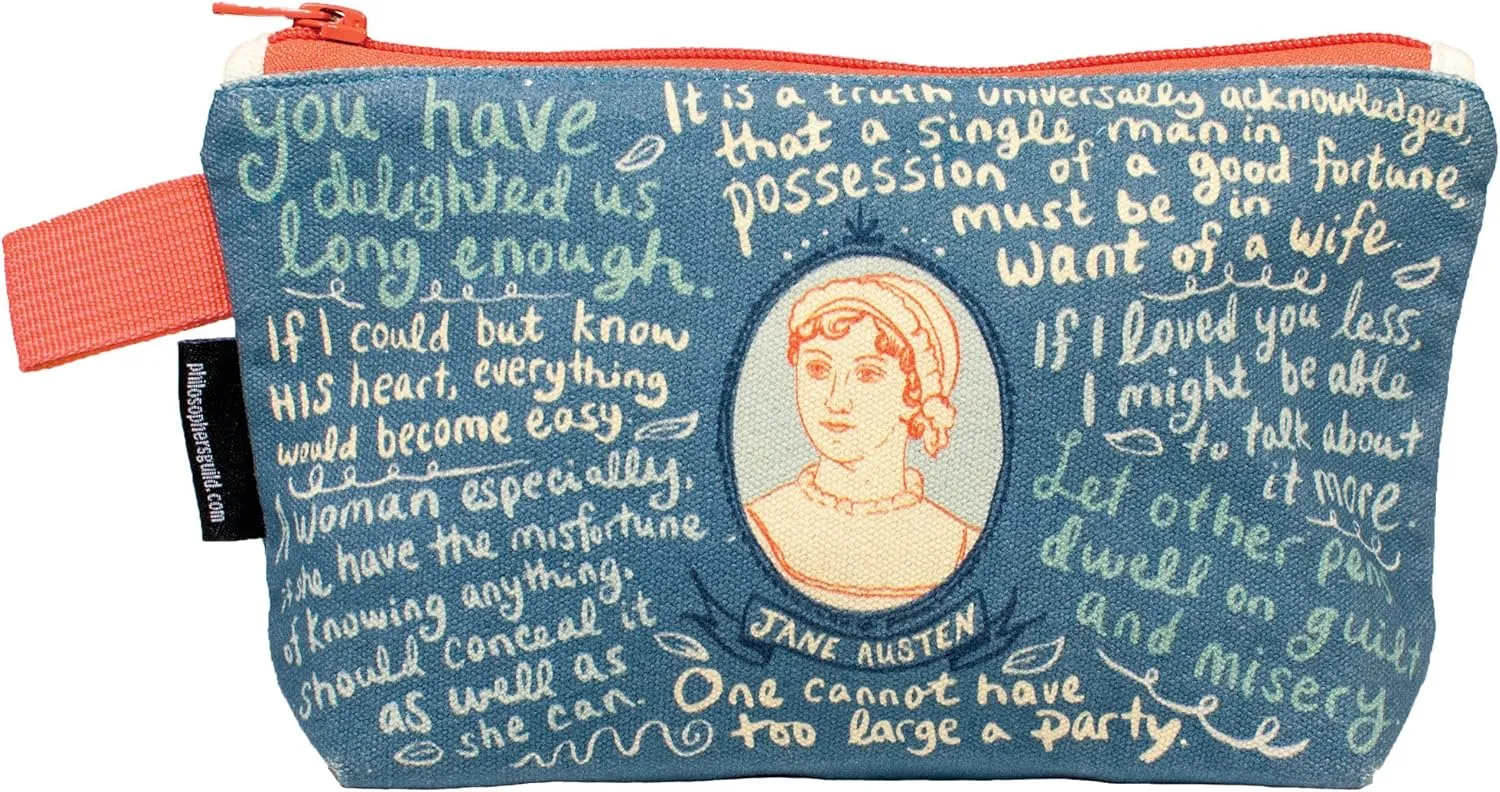 you have
delighted us
long enough.
It is a truth universally acknowledged,
that a single man in
possession of a good fortune,
must be in
want of a wife.
If I could but know
HIS heart, everything
would become easy
A woman especially,
if she have the misfortune
of knowing anything,
should conceal it
as well as
she can.
If I loved you less,
I might be able
to talk about
it more.
Let other pens
dwell on guilt
and misery.
JANE AUSTEN
One cannot have
too large a party.
philosophersguild.com